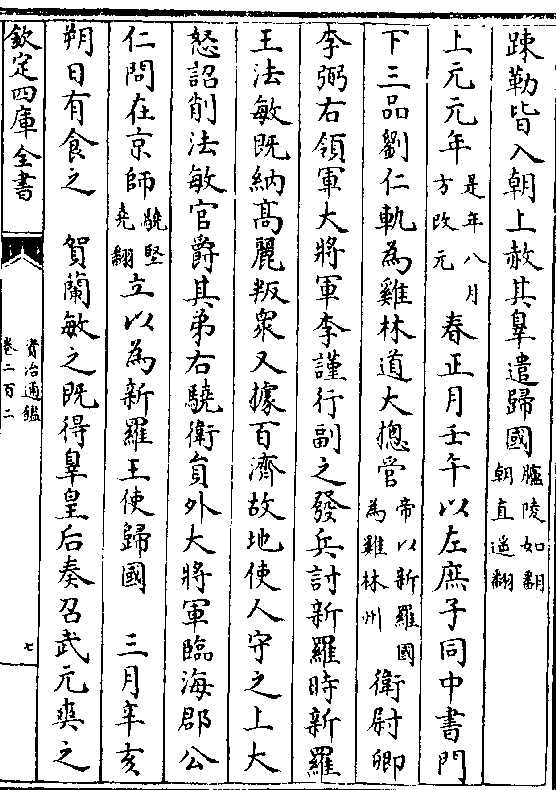 踈勒皆入朝上赦其辠遣歸國臚陵如翻朝直遥翻
上元元年是年八月方改元　春正月壬午以左庶子同中書門
下三品劉仁軌為雞林道大摠管帝以新羅國為雞林州衛尉卿
李弼右領軍大將軍李謹行副之發兵討新羅時新羅
王法敏既納髙麗叛衆又據百濟故地使人守之上大
怒詔削法敏官爵其弟右驍衛貟外大將軍臨海郡公
仁問在京師驍堅堯翻立以為新羅王使歸國　三月辛亥
朔日有食之　賀蘭敏之既得辠皇后奏召武元爽之
欽定四庫全書
資治通鑑
卷二百二
七